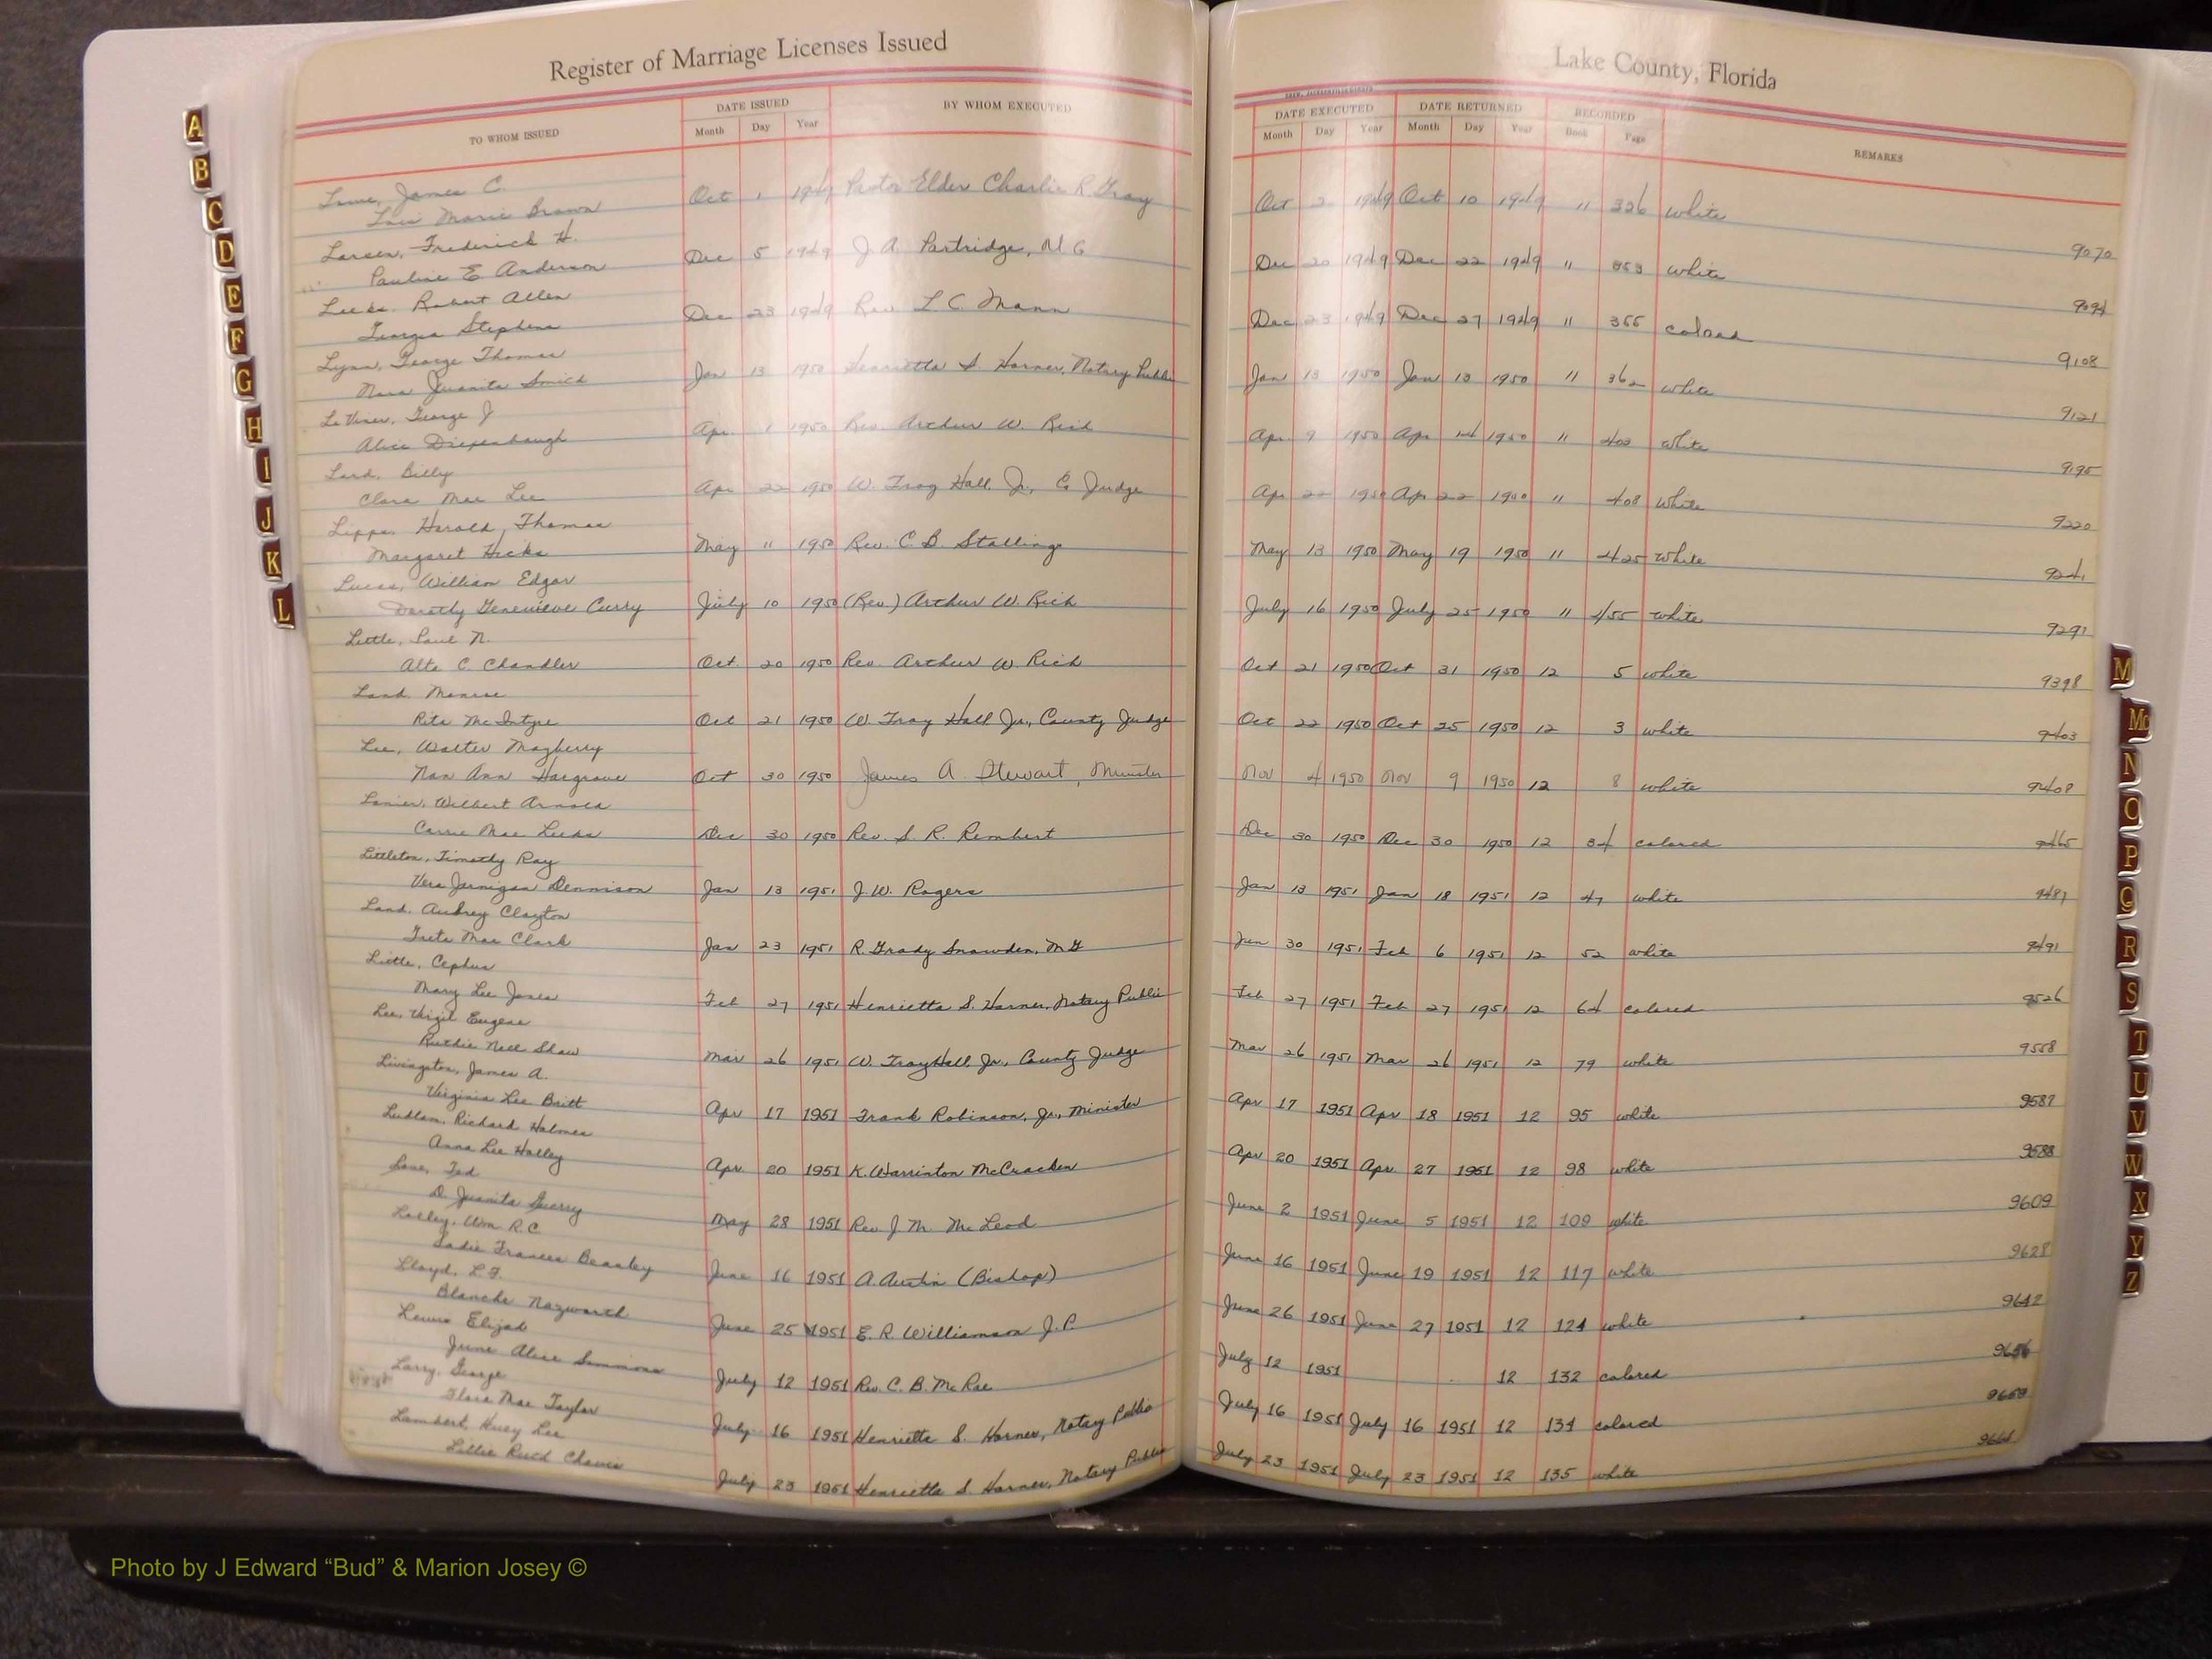 Register of Marriage Licenses Issued
Lake County, Florida
TO WHOM ISSUED
DATE ISSUED
Month Day Year
BY WHOM EXECUTED
DATE EXECUTED
Month Day Year
DATE RETURNED
Month Day Year
RECORDED
Book Page
REMARKS
James C. Oct 1 1949 Pastor Elder Charlie R. Gray Oct 2 1949 Oct 10 1949 " 326 white
Lois Marie Brown 9070
Larsen, Frederick H. Dec 5 1949 J. A. Partridge, M G Dec 20 1949 Dec 22 1949 " 353 white
Pauline E Anderson 9094
Leeks. Robert Allen Dec 23 1949 Rev L C Mann Dec 23 1949 Dec 27 1949 " 355 colored
Georgia Stephens 9108
Lynn, George Thomas Jan 13 1950 Henrietta S. Harner, Notary Public Jan 13 1950 Jan 13 1950 " 362 white
Juanita Smith 9121
George J Apr 1 1950 Rev. Arthur W. Rich Apr 9 1950 Apr 14 1950 " 402 white
Alice Diepenbaugh 9195
Lord, Billy Apr 22 1950 W. Troy Hall, Jr., Co Judge Apr 22 1950 Apr 22 1950 " 408 white
Clara Mae Lee 9220
Lipps, Harold Thomas May 11 1950 Rev. C. B. Stallings May 13 1950 May 19 1950 " 425 white
Margaret Hicks 9241
Lucas, William Edgar
Dorothy Genevieve Curry July 10 1950 (Rev.) Arthur W. Rich July 16 1950 July 25 1950 " 455 white 9291
Little, Paul N.
Alta C. Chandler Oct. 20 1950 Rev. Arthur W. Rich Oct 21 1950 Oct 31 1950 12 5 white 9398
Land. Monroe
Rita McIntyre Oct 21 1950 W. Troy Hall Jr., County Judge Oct 22 1950 Oct 25 1950 12 3 white 9403
Lee, Walter Mayberry
Nan Ann Hargrave Oct 30 1950 James A. Stewart, Minister Nov 4 1950 Nov 9 1950 12 8 white 9408
Lanier, Wilbert Arnold
Carrie Mae Leeks Dec 30 1950 Rev. S. R. Rembert Dec 30 1950 Dec 30 1950 12 34 colored 9465
Littleton, Timothy Ray
Vera Jarnigan Dennison Jan 13 1951 J. W. Rogers Jan 13 1951 Jan 18 1951 12 47 white 9481
Land. Aubrey Clayton
Mae Clark Jan 23 1951 R. Grady Snowden, M G Jan 30 1951 Feb 6 1951 12 52 white 9491
Little, Cephus
Mary Lee Jones Feb 27 1951 Henrietta S. Harner, Notary Public Feb 27 1951 Feb 27 1951 12 64 colored 9526
Lee, Virgil Eugene
Ruthie Nell Shaw Mar 26 1951 W. Troy Hall, Jr., County Judge Mar 26 1951 Mar 26 1951 12 79 white 9558
Livingston, James A.
Virginia Lee Britt Apr 17 1951 Frank Robinson, Jr., Minister Apr 17 1951 Apr 18 1951 12 95 white 9587
Ludlam, Richard Holmes
Anna Lee Holley Apr. 20 1951 K. Warrinton McCracken Apr 20 1951 Apr. 27 1951 12 98 white 9588
Lane, Ted
D. Juanita Guerry May 28 1951 Rev J. M. McLeod June 2 1951 June 5 1951 12 109 white 9609
Lolley, Wm R. C.
Sadie Frances Beasley June 16 1951 A. Austin (Bishop) June 16 1951 June 19 1951 12 117 white 9628
Lloyd, L. F.
Blanche Nazworth June 25 1951 E. R. Williamson J. P. June 26 1951 June 27 1951 12 124 white 9642
Lewis Elijah
June Alice Simmons July 12 1951 Rev. C. B. McRae July 12 1951 12 132 colored 9656
Larry, George
Mae Taylor July 16 1951 Henrietta S. Harner, Notary Public July 16 1951 July 16 1951 12 134 colored 9659
Lambert, Huey Lee
Lillie Ruth July 23 1951 Henrietta S. Harner, Notary Public July 23 1951 July 23 1951 12 135 white
A
B
C
D
E
F
G
H
I
J
K
L
M
Mc
N
O
P
Q
R
S
T
U
V
W
X
Y
Z
Photo by J Edward “Bud” & Marion Josey ©